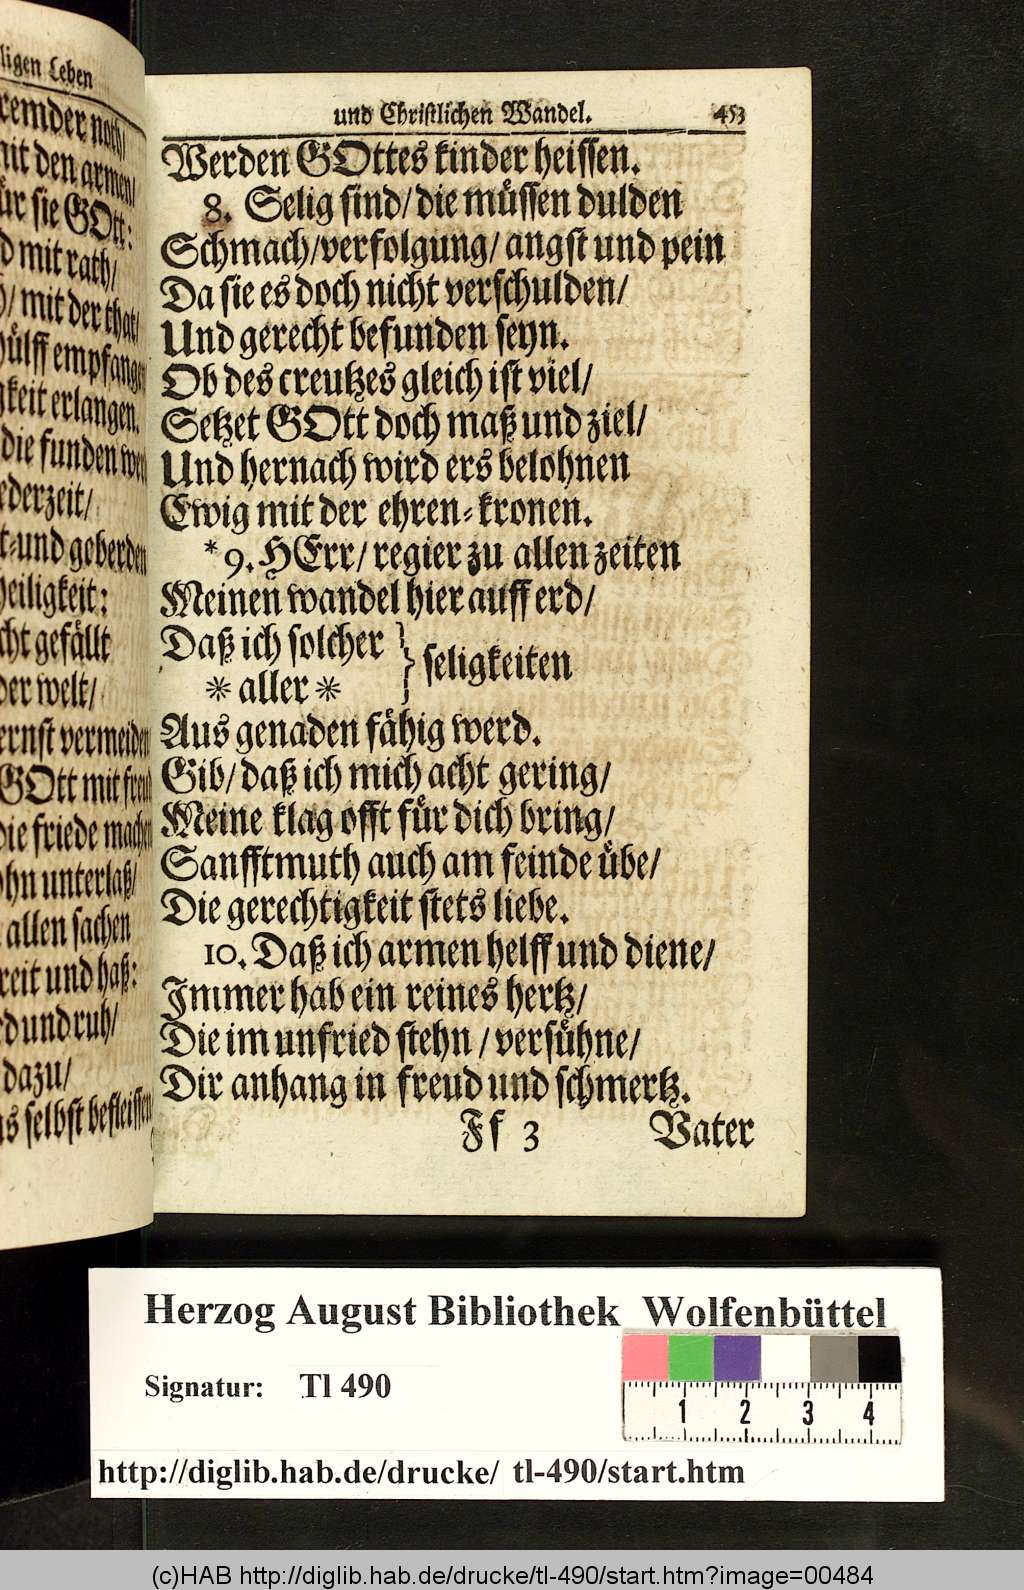 ligen Leben
remder noth/
mit den armen/
für sie GOtt:
mit rath/
mit der that/
hülff empfangen
keit erlangen.
die funden
ederzeit/
und geberden
heiligkeit:
gefällt
der welt/
ernst vermeiden
GOtt mit freud
die friede machen
unterlaß/
allen sachen
und haß:
und ruh/
dazu/
selbst befleissen
und Christlichen Wandel. 453
Werden GOttes kinder heissen.
8. Selig sind/ die müssen dulden
Schmach/verfolgung/ angst und pein
Da sie es doch nicht verschulden/
Und gerecht befunden seyn.
Ob des creutzes gleich ist viel/
Setzet GOtt doch maß und ziel/
Und hernach wird ers belohnen
Ewig mit der ehren-kronen.
*9. HErr/ regier zu allen zeiten
Meinen wandel hier auff erd/
Daß ich solcher } seligkeiten
* aller *
Aus genaden fähig werd.
Gib/ daß ich mich acht gering/
Meine klag offt für dich bring/
Sanfftmuth auch am feinde übe/
Die gerechtigkeit stets liebe.
10. Daß ich armen helff und diene/
Immer hab ein reines hertz/
Die im unfried stehn / versühne/
Dir anhang in freud und schmertz.
Ff 3 Vater
Herzog August Bibliothek Wolfenbüttel
Signatur: Tl 490
1 2 3 4
http://diglib.hab.de/drucke/ tl-490/start.htm
(c)HAB http://diglib.hab.de/drucke/tl-490/start.htm?image=00484